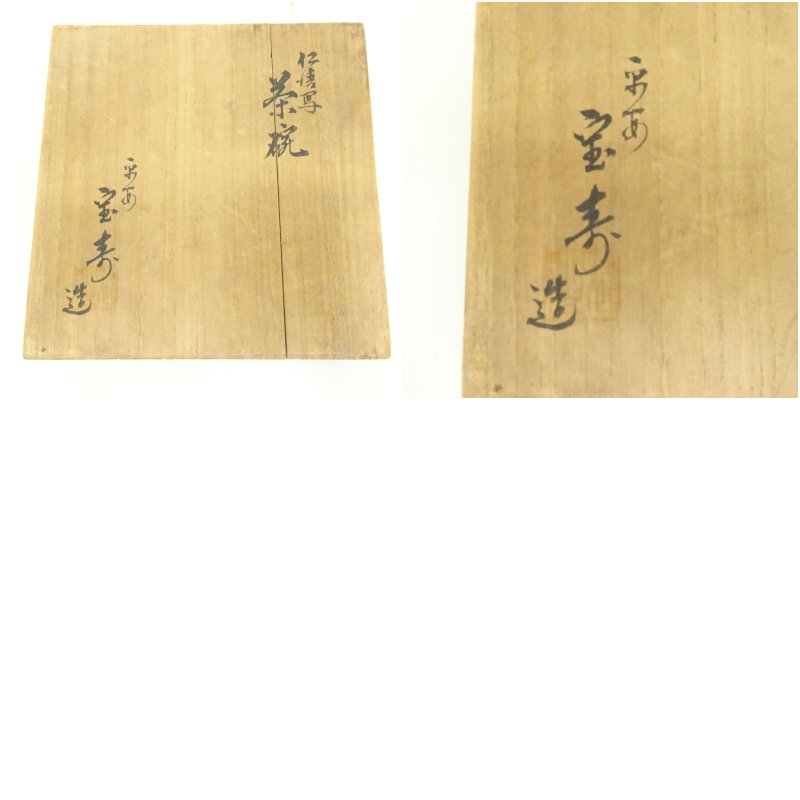 仁清写
茶碗
平安
宝寿
造
平安
宝寿
造